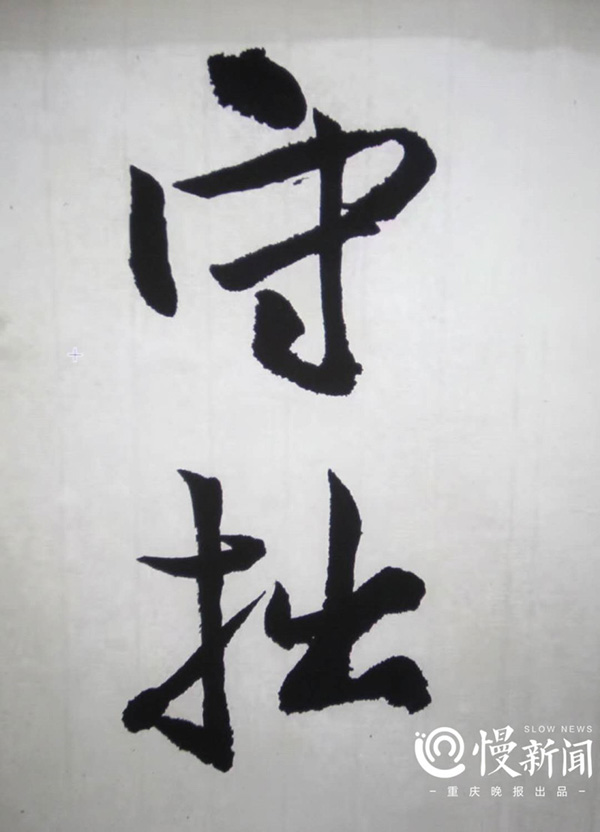 守
拙
SLOW NEWS
慢新闻
-重庆晚报出品-